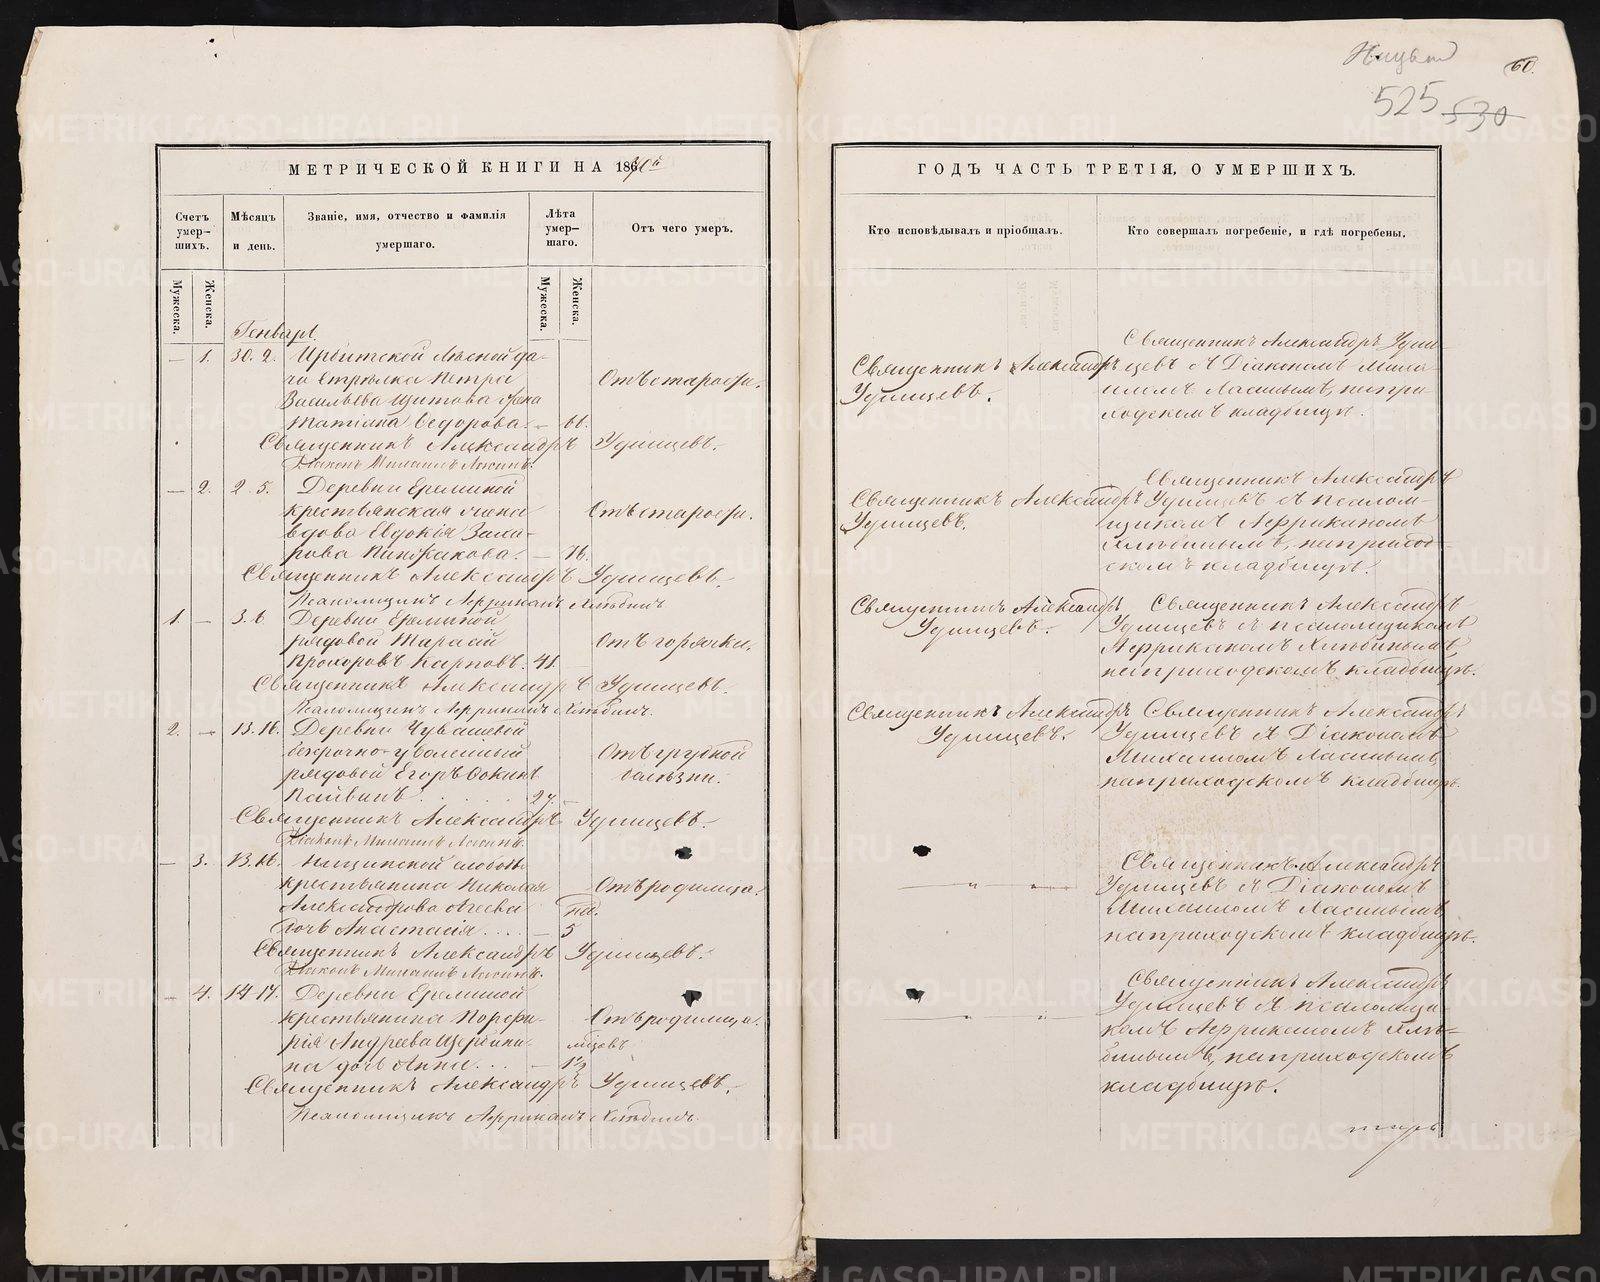 60.
525 530
МЕТРИЧЕСКОЙ КНИГИ НА 1870й
ГОДЪ ЧАСТЬ ТРЕТІЯ, О УМЕРШИХЪ.
Счетъ умер-
шихъ.
Мѣсяцъ
и день.
Званіе, имя, отчество и фамилія
умершаго.
Лѣта
умер-
шаго.
Отъ чего умеръ.
Кто исповѣдывалъ и пріобщалъ.
Кто совершалъ погребеніе, и гдѣ погребены.
Мужеска.
Женска.
Мужеска.
Женска.
Генварь.
— 1. 30. 2. Ирбитской Лѣсной да-
чи Стрѣлка Петра
Васильева Щитова жена
Татіана Ѳедорова. — 66.
Отъ старости.
Священникъ Александръ
Удинцевъ.
Священникъ Александръ Удин-
цевъ съ Діакономъ Миха-
иломъ Ласинымъ, на при-
ходскомъ кладбищѣ.
Священникъ Александръ Удинцевъ.
Діаконъ Михаилъ Ласинъ.
— 2. 2. 5. Деревни Ереминой
крестьянская жена
вдова Евдокія Заха-
рова Пинжакова. — 76.
Отъ старости.
Священникъ Александръ
Удинцевъ.
Священникъ Александръ
Удинцевъ съ псалом-
щикомъ Африканомъ
Хлѣбинымъ, на приход-
скомъ кладбищѣ.
Священникъ Александръ Удинцевъ.
Псаломщикъ Африканъ Хлѣбинъ
1. — 3. 6. Деревни Ереминой
рядовой Тарасій
Прохоровъ Карповъ. 41.
Отъ горячки.
Священникъ Александръ
Удинцевъ.
Священникъ Александръ
Удинцевъ съ псаломщикомъ
Африканомъ Хлѣбинымъ,
на приходскомъ кладбищѣ.
Священникъ Александръ Удинцевъ.
Псаломщикъ Африканъ Хлѣбинъ.
2. — 13. 16. Деревни Чувашевой
безсрочно-уволенный
рядовой Егоръ Ѳокинъ
Пайвинъ . . . . . 27. —
Отъ грудной
болѣзни.
Священникъ Александръ
Удинцевъ.
Священникъ Александръ
Удинцевъ съ Діакономъ
Михаиломъ Ласинымъ,
на приходскомъ кладбищѣ.
Священникъ Александръ Удинцевъ.
Діаконъ Михаилъ Ласинъ.
— 3. 13. 16. Ницинской слободы
крестьянина Николая
Александрова Агеева
дочь Анастасія . . . . — 5 нд.
Отъ родимца.
— „ „ —
Священникъ Александръ
Удинцевъ съ Діакономъ
Михаиломъ Ласинымъ,
на приходскомъ кладбищѣ.
Священникъ Александръ Удинцевъ.
Діаконъ Михаилъ Ласинъ.
— 4. 14. 17. Деревни Ереминой
крестьянина Порфи-
рія Андреева Щербини-
на дочь Анна . . . — 1½
Отъ родимца.
— „ „ —
Священникъ Александръ
Удинцевъ съ псаломщи-
комъ Африканомъ Хлѣ-
бинымъ, на приходскомъ
кладбищѣ.
Священникъ Александръ Удинцевъ.
Псаломщикъ Африканъ Хлѣбинъ.
METRIKI.GASO-URAL.RU